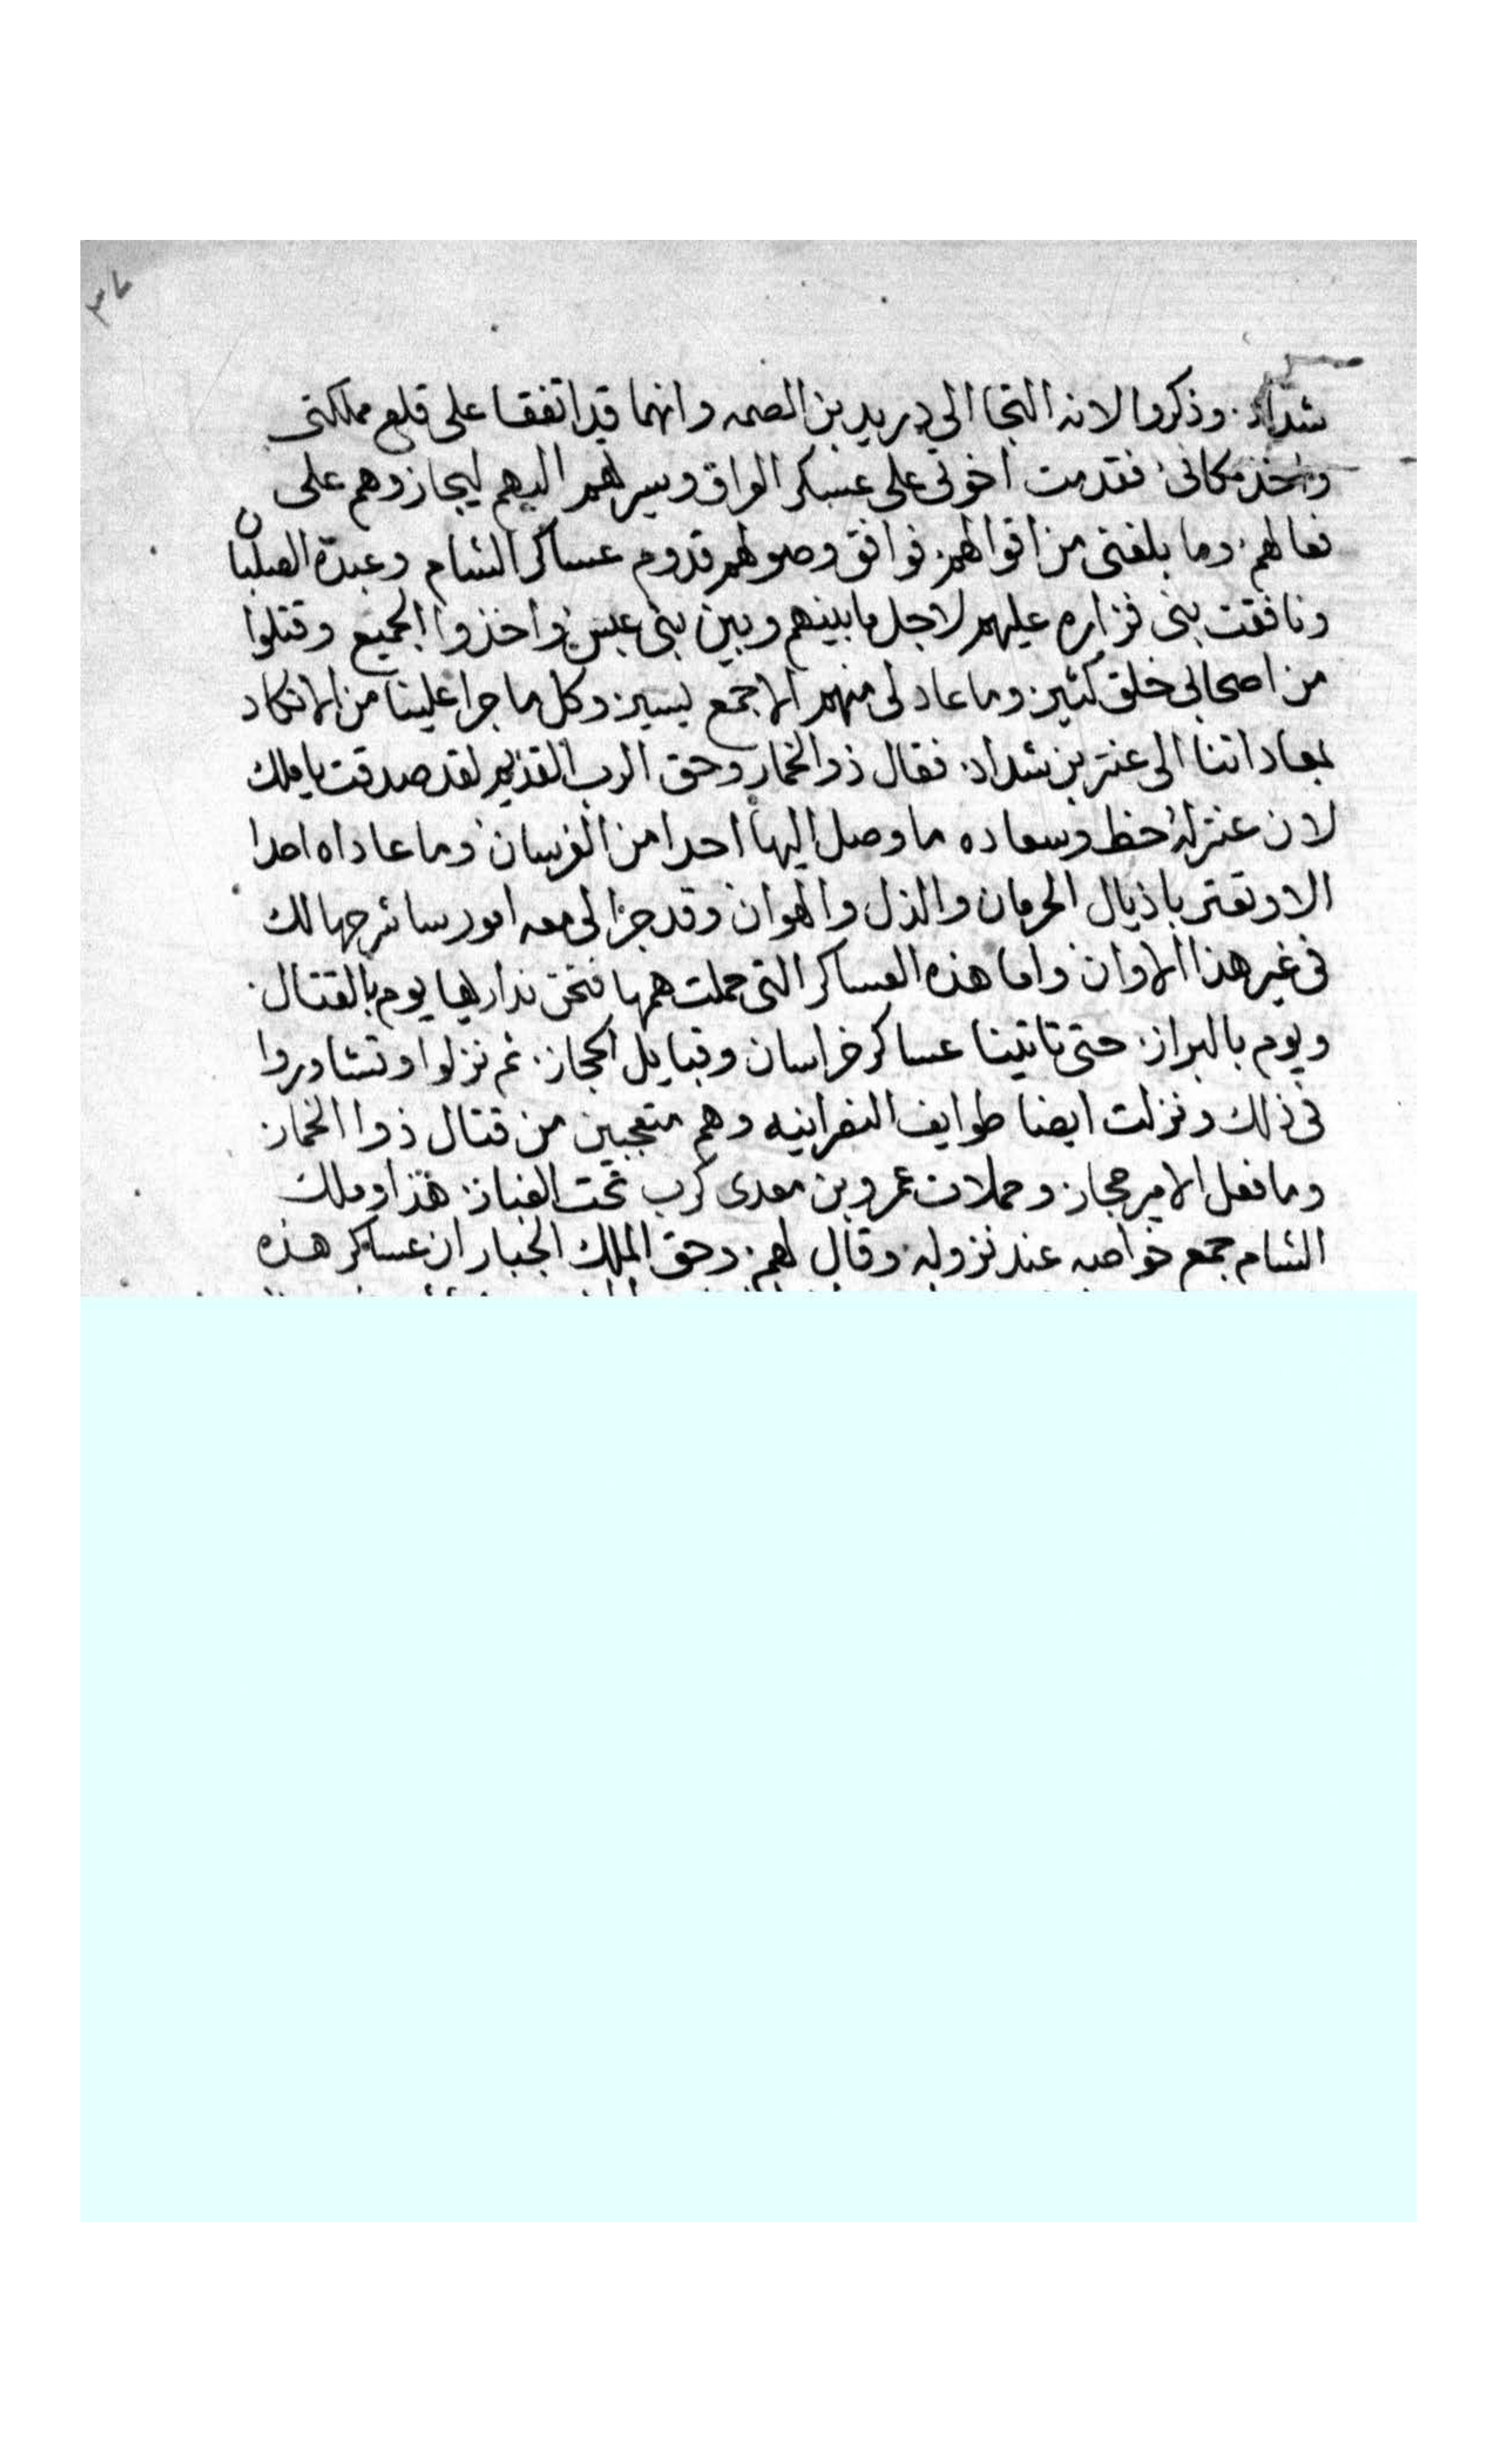 ٣٧
شداد. وذكروا لانه التجا الي دريد بن الصمه وانهما قد اتفقا على قلع مملكتى
واخذ مكانى فقدمت اخوتى على عسكر العراق وسيرتهم اليهم ليجازوهم على
فعالهم وما بلغنى من اقوالهم فوافق وصولهم قدوم عساكر الشام وعبدة الصلبان
ونافقت بنى فزاره عليهم لاجل ما بينهم وبين بنى عبس واخذوا الجميع وقتلوا
من اصحابى خلق كثير وما عاد لى منهم الا جمع يسير وكل ما جرا علينا من الانكاد
بمعاداتنا الى عنتر بن شداد فقال ذو الخمار وحق الرب القديم لقد صدقت يا ملك
لان عنتر له حظ وسعاده ما وصل اليها احدا من الفرسان وما عاداه احدا
الا وتعتر باذيال الحرمان والذل والهوان وقد جرا لى معه امور ساشرحها لك
فى غير هذا الاوان واما هذه العساكر التى حملت همها فنحن نداريها يوم بالقتال
ويوم بالبراز حتى تاتينا عساكر خراسان وقبايل الحجاز ثم نزلوا وتشاوروا
فى ذلك ونزلت ايضا طوايف النصرانيه وهم متعجبين من قتال ذوا الخمار
وما فعل الامير حجاز وحملات عمرو بن معدى كرب تحت الغبار هذا وملك
الشام جمع خواصه عند نزوله وقال لهم وحق الملك الجبار ان عساكر هذه